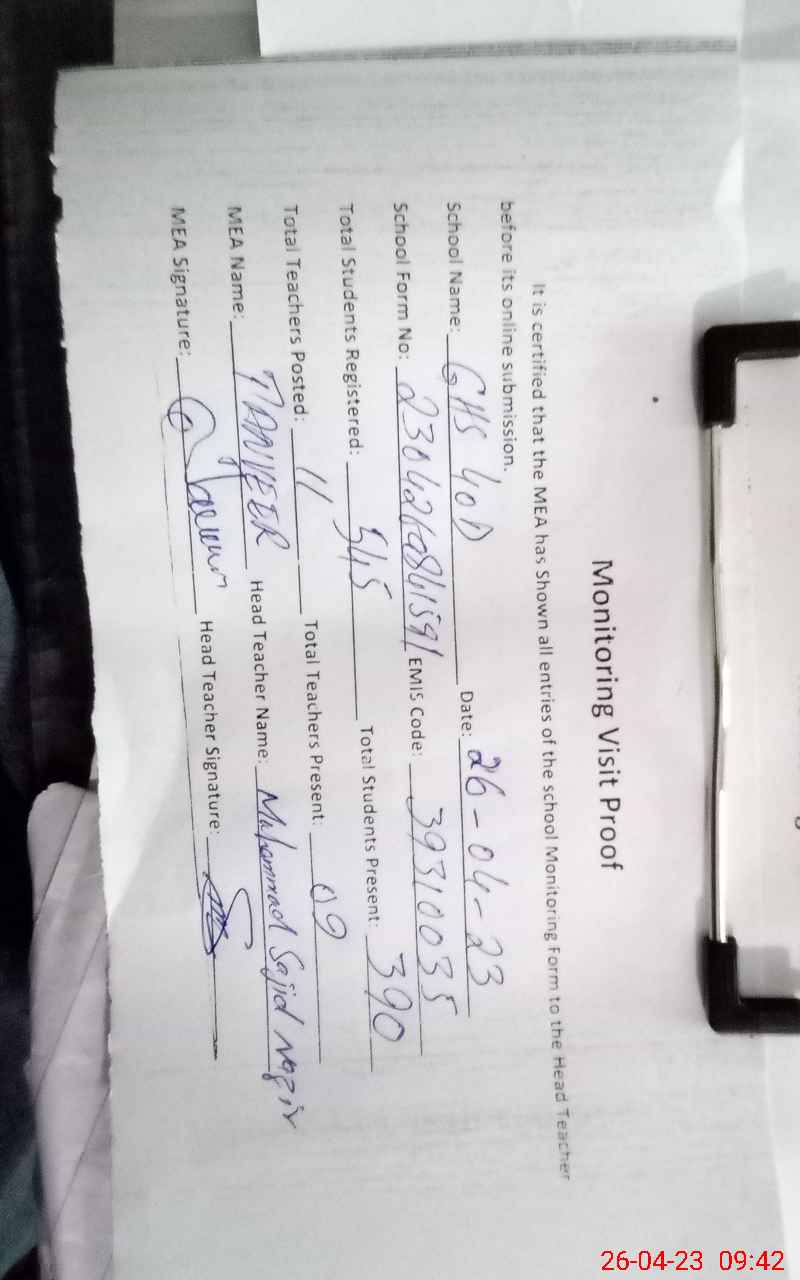 Monitoring Visit Proof
It is certified that the MEA has Shown all entries of the school Monitoring Form to the Head Teacher
before its online submission.
School Name: GHS 40D Date: 26-04-23
School Form No: 230426a841591 EMIS Code: 39310035
Total Students Registered: 545 Total Students Present: 390
Total Teachers Posted: 11 Total Teachers Present: 09
MEA Name: TANVEER Head Teacher Name: Muhammad Sajid Nazir
MEA Signature: Head Teacher Signature:
26-04-23 09:42